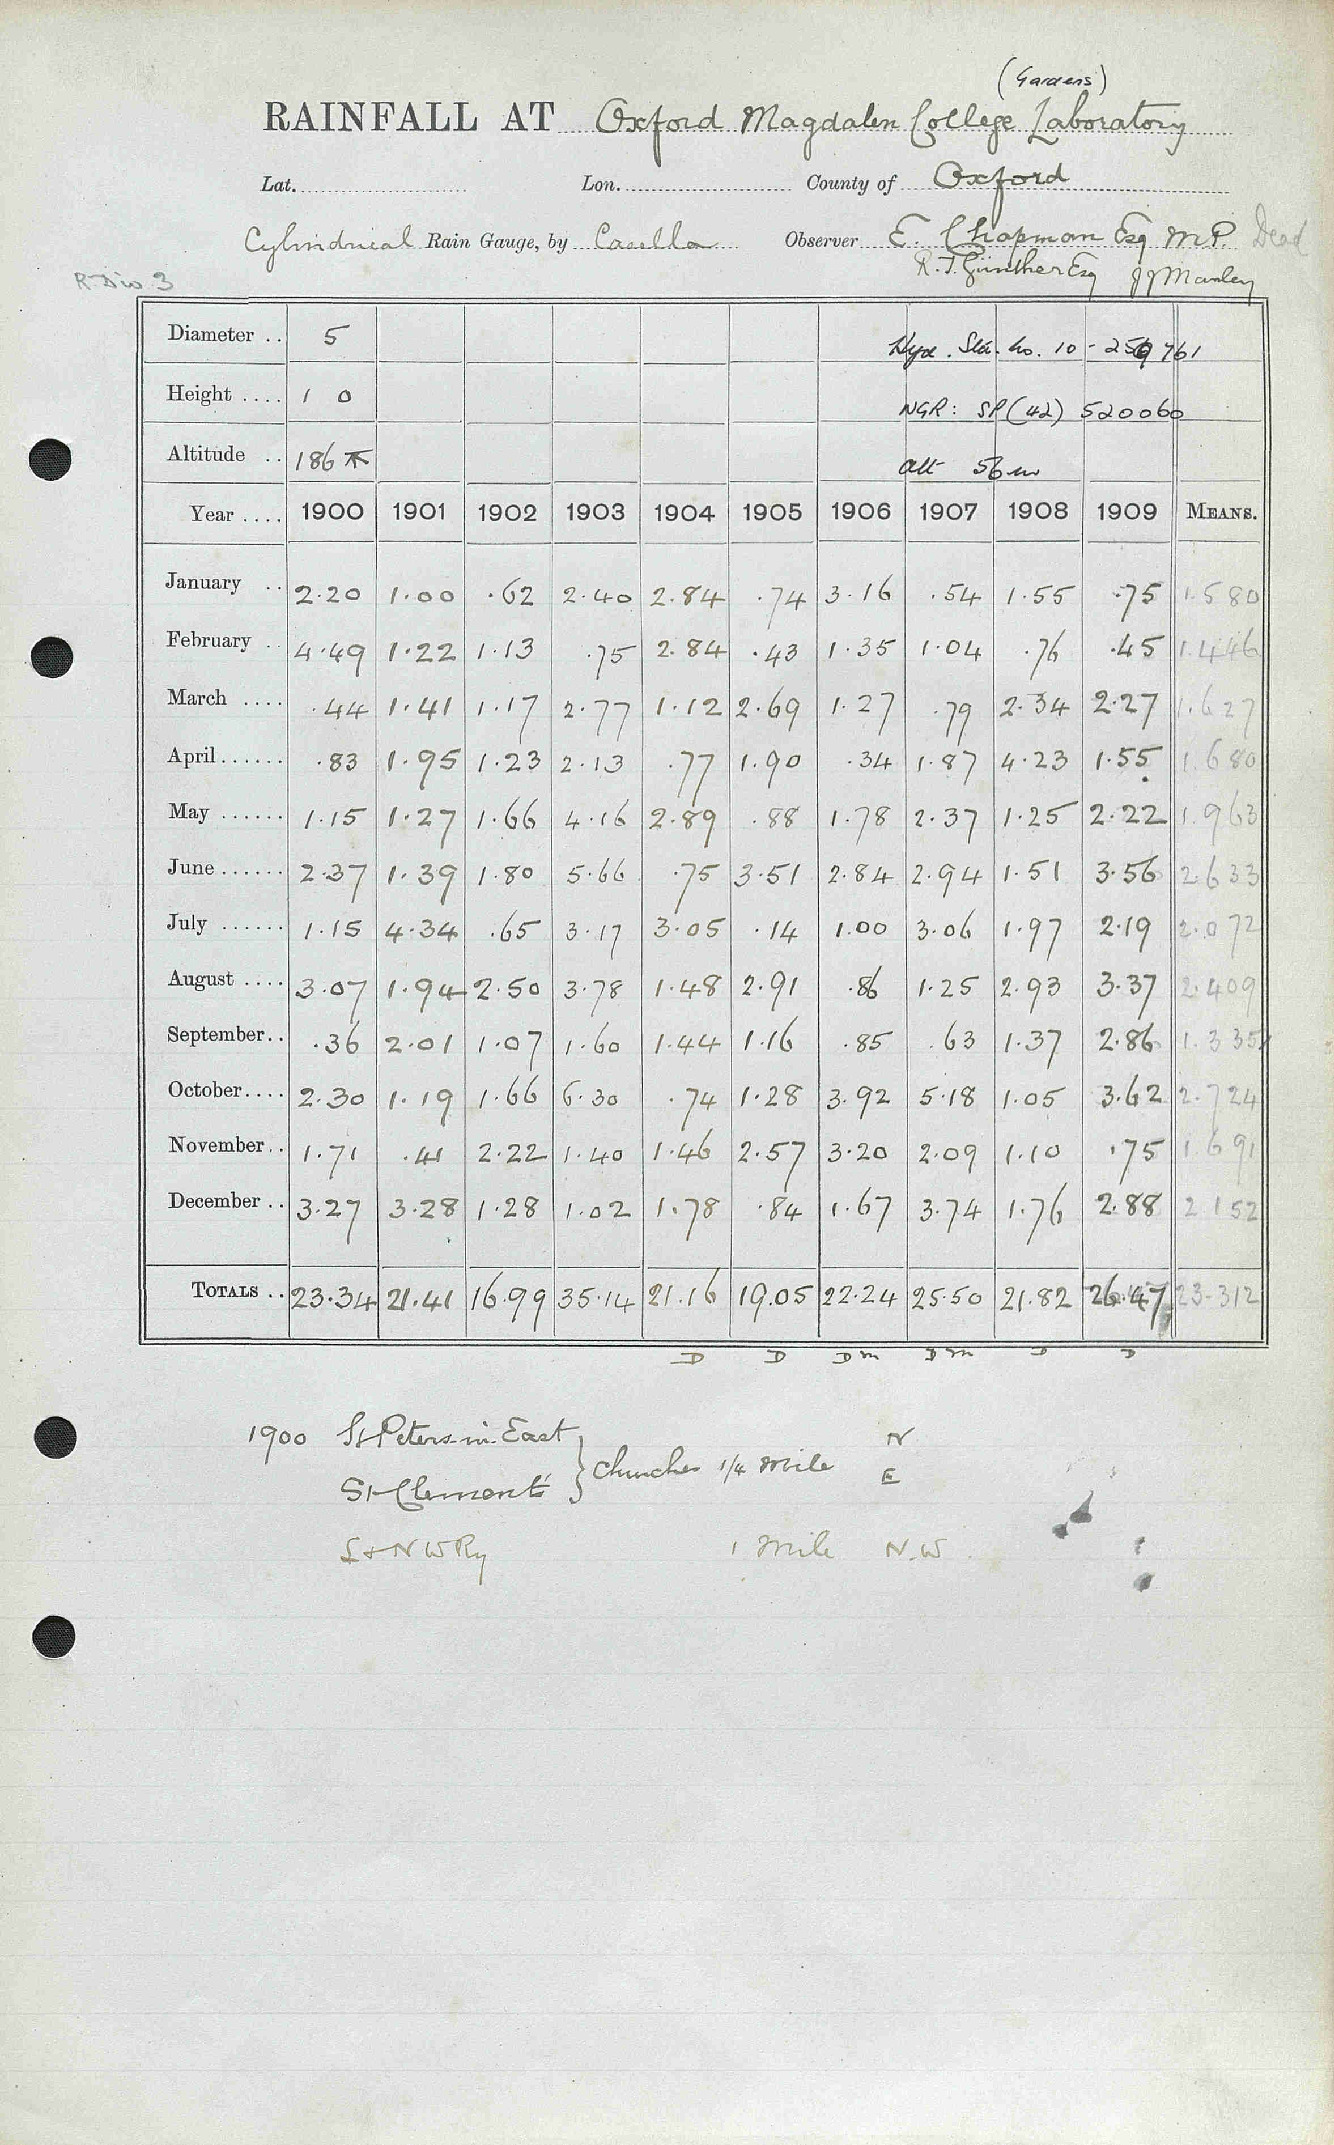 (Gardens)
RAINFALL AT Oxford Magdalen College Laboratory
Lat. Lon. County of Oxford
Cylindrical Rain Gauge, by Casella Observer E. Chapman Esq M.P. Dead
R. T. Günther Esq J J Manley
R Div 3
Diameter .. 5 Hyd. Sta. No. 10 - 256761
Height .... 1 0 NGR: SP (42) 520060
Altitude .. 186 ft alt 56 m
Year .... 1900 1901 1902 1903 1904 1905 1906 1907 1908 1909 MEANS.
January .. 2.20 1.00 .62 2.40 2.84 .74 3.16 .54 1.55 .75 1.580
February .. 4.49 1.22 1.13 .75 2.84 .43 1.35 1.04 .76 .45 1.446
March .... .44 1.41 1.17 2.77 1.12 2.69 1.27 .79 2.34 2.27 1.627
April ...... .83 1.95 1.23 2.13 .77 1.90 .34 1.87 4.23 1.55 1.680
May ...... 1.15 1.27 1.66 4.16 2.89 .88 1.78 2.37 1.25 2.22 1.963
June ...... 2.37 1.39 1.80 5.66 .75 3.51 2.84 2.94 1.51 3.56 2.633
July ...... 1.15 4.34 .65 3.17 3.05 .14 1.00 3.06 1.97 2.19 2.072
August .... 3.07 1.94 2.50 3.78 1.48 2.91 .86 1.25 2.93 3.37 2.409
September .. .36 2.01 1.07 1.60 1.44 1.16 .85 .63 1.37 2.86 1.335
October .... 2.30 1.19 1.66 6.30 .74 1.28 3.92 5.18 1.05 3.62 2.724
November .. 1.71 .41 2.22 1.40 1.46 2.57 3.20 2.09 1.10 .75 1.691
December .. 3.27 3.28 1.28 1.02 1.78 .84 1.67 3.74 1.76 2.88 2.152
TOTALS .. 23.34 21.41 16.99 35.14 21.16 19.05 22.24 25.50 21.82 26.47 23.312
D D Dm Dm D D
1900 St Peters in East } churches 1/4 mile N
St Clement's E
L & N W Ry 1 Mile N.W